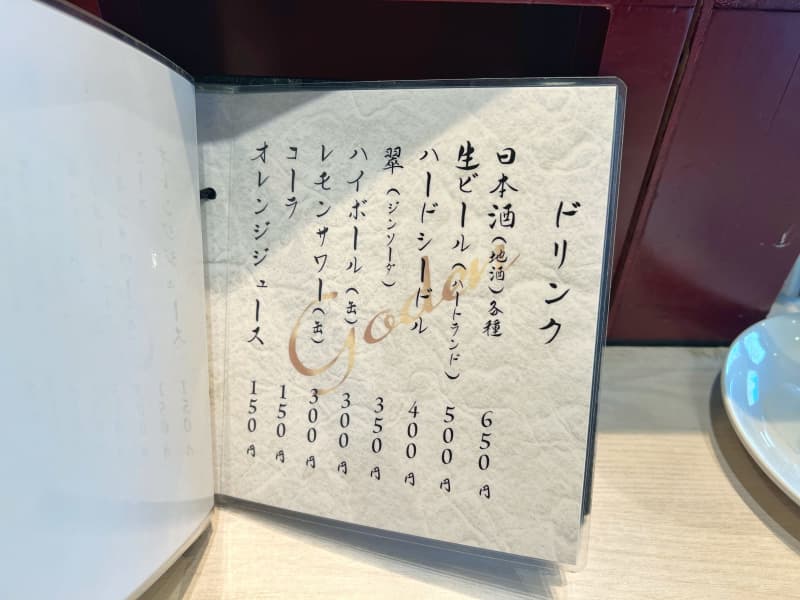 ドリンク
日本酒（地酒）各種 650円
生ビール（ハートランド） 500円
ハードシードル 400円
翠（ジンソーダ） 350円
ハイボール（缶） 300円
レモンサワー（缶） 300円
コーラ 150円
オレンジジュース 150円